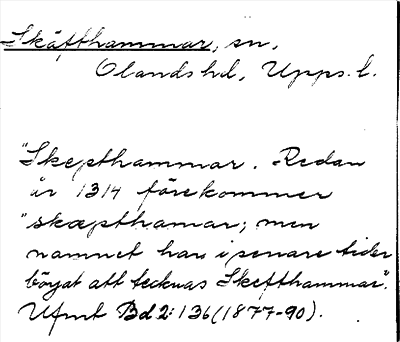 Skäfthammar, sn,
Olands hd, Upps. l.
"Skepthammar. Redan
år 1314 förekommer
"skæpthamar; men
namnet har i senare tider
börjat att tecknas Skefthammar".
Ufmt Bd 2: 136 (1877-90).